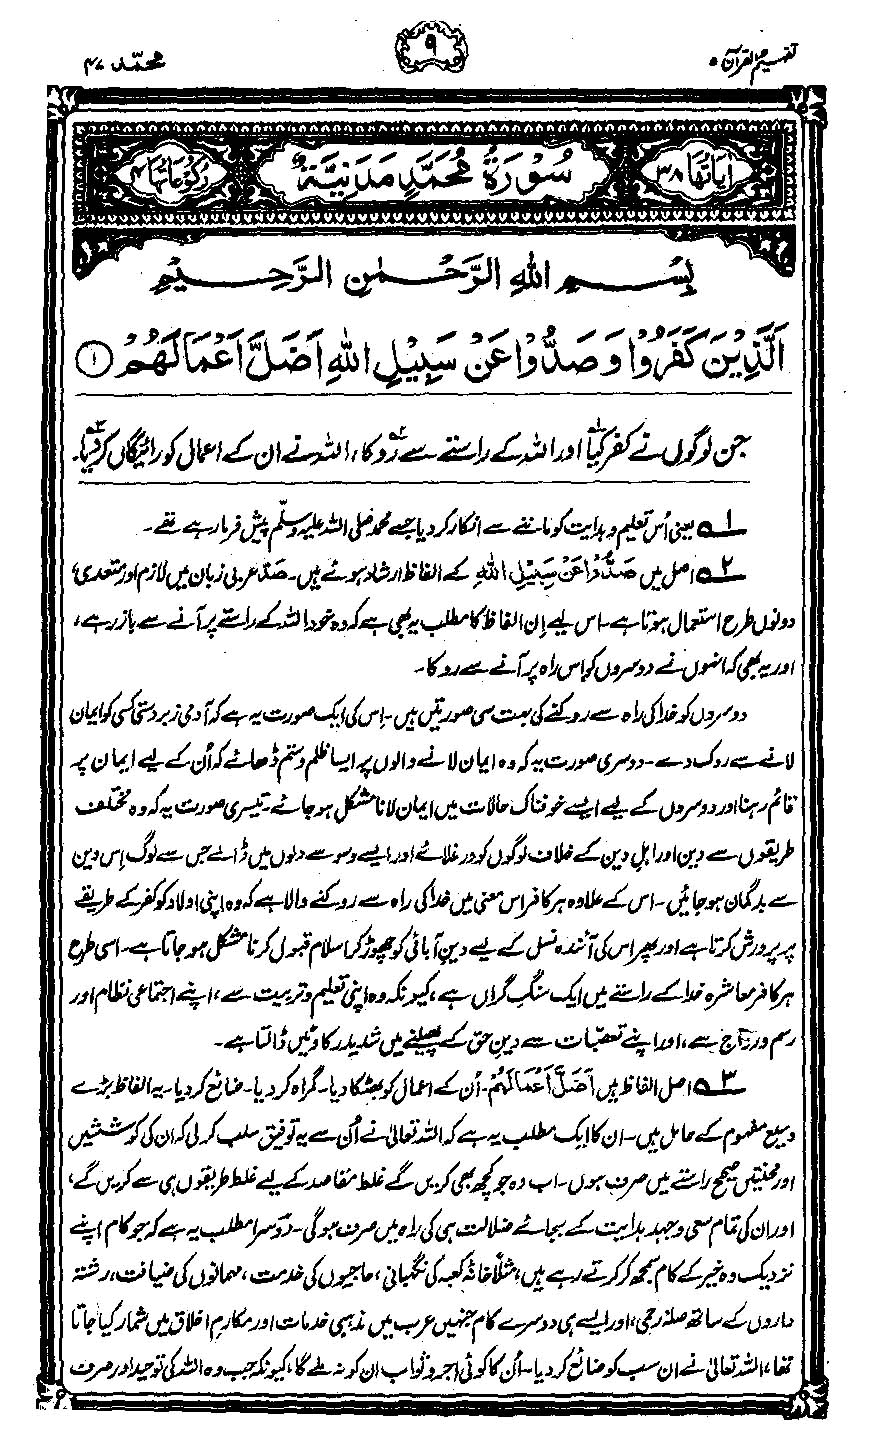 تفہیم القرآن ۵
۹
محمّد ۴۷
اٰیَاتُهَا ۳۸
سُوْرَةُ مُحَمَّدٍ مَدَنِيَّةٌ
رُكُوْعَاتُهَا ۴
بِسْمِ اللهِ الرَّحْمٰنِ الرَّحِيْمِ
اَلَّذِيْنَ كَفَرُوْا وَصَدُّوْا عَنْ سَبِيْلِ اللهِ اَضَلَّ اَعْمَالَهُمْ ۝۱
جن لوگوں نے کفر کیا۱ اور اللہ کے راستے سے روکا۲، اللہ نے ان کے اعمال کو رائیگاں کر دیا۳۔
۱ یعنی اُس تعلیم و ہدایت کو ماننے سے انکار کر دیا جسے محمد صلی اللہ علیہ وسلّم پیش فرما رہے تھے۔
۲ اصل میں صَدُّوْا عَنْ سَبِیْلِ اللہِ کے الفاظ ارشاد ہوئے ہیں۔ صَدّ عربی زبان میں لازم اور متعدی،
دونوں طرح استعمال ہوتا ہے۔ اس لیے اِن الفاظ کا مطلب یہ بھی ہے کہ وہ خود اللہ کے راستے پر آنے سے باز رہے،
اور یہ بھی کہ انہوں نے دوسروں کو اِس راہ پر آنے سے روکا۔
دوسروں کو خدا کی راہ سے روکنے کی بہت سی صورتیں ہیں۔ اِس کی ایک صورت یہ ہے کہ آدمی زبردستی کسی کو ایمان
لانے سے روک دے۔ دوسری صورت یہ کہ وہ ایمان لانے والوں پر ایسا ظلم و ستم ڈھائے کہ اُن کے لیے ایمان پر
قائم رہنا اور دوسروں کے لیے ایسے خوفناک حالات میں ایمان لانا مشکل ہو جائے۔ تیسری صورت یہ کہ وہ مختلف
طریقوں سے دین اور اہلِ دین کے خلاف لوگوں کو ورغلائے اور ایسے وسوسے دلوں میں ڈالے جس سے لوگ اِس دین
سے بدگمان ہو جائیں۔ اس کے علاوہ ہر کافر اس معنی میں خدا کی راہ سے روکنے والا ہے کہ وہ اپنی اولاد کو کفر کے طریقے
پر پرورش کرتا ہے اور پھر اس کی آئندہ نسل کے لیے دینِ آبائی کو چھوڑ کر اسلام قبول کرنا مشکل ہو جاتا ہے۔ اسی طرح
ہر کافر معاشرہ خدا کے راستے میں ایک سنگِ گراں ہے، کیونکہ وہ اپنی تعلیم و تربیت سے، اپنے اجتماعی نظام اور
رسم و رواج سے، اور اپنے تعصّبات سے دینِ حق کے پھیلنے میں شدید رکاوٹیں ڈالتا ہے۔
۳ اصل الفاظ ہیں اَضَلَّ اَعْمَالَهُمْ۔ اُن کے اعمال کو بھٹکا دیا۔ گمراہ کر دیا۔ ضائع کر دیا۔ یہ الفاظ بڑے
وسیع مفہوم کے حامل ہیں۔ ان کا ایک مطلب یہ ہے کہ اللہ تعالیٰ نے اُن سے یہ توفیق سلب کر لی کہ ان کی کوششیں
اور محنتیں صحیح راستے میں صرف ہوں۔ اب وہ جو کچھ بھی کریں گے غلط مقاصد کے لیے غلط طریقوں ہی سے کریں گے،
اور ان کی تمام سعی و جہد ہدایت کے بجائے ضلالت ہی کی راہ میں صرف ہو گی۔ دوسرا مطلب یہ ہے کہ جو کام اپنے
نزدیک وہ خیر کے کام سمجھ کر کرتے رہے ہیں، مثلاً خانۂ کعبہ کی نگہبانی، حاجیوں کی خدمت، مہمانوں کی ضیافت، رشتہ
داروں کے ساتھ صلۂ رحمی، اور ایسے ہی دوسرے کام جنہیں عرب میں مذہبی خدمات اور مکارمِ اخلاق میں شمار کیا جاتا
تھا، اللہ تعالیٰ نے ان سب کو ضائع کر دیا۔ اُن کا کوئی اجر و ثواب ان کو نہ ملے گا، کیونکہ جب وہ اللہ کی توحید اور صرف